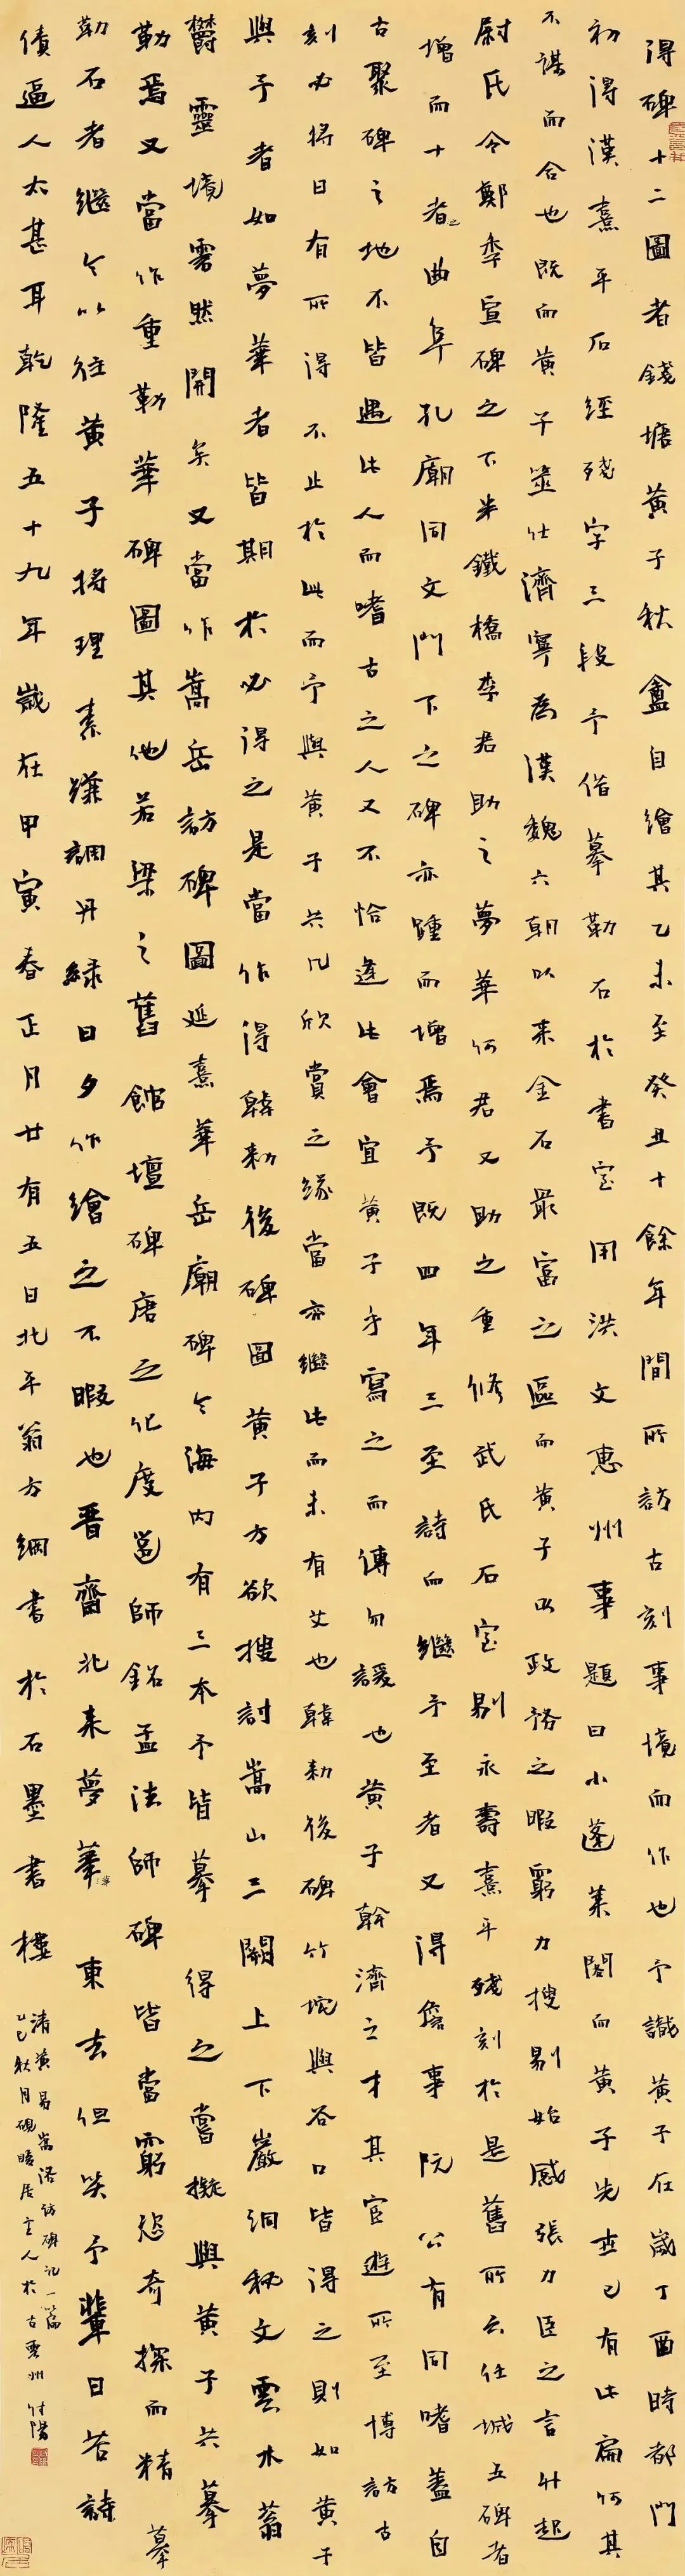 得碑十二圖者錢塘黃子秋盦自繪其乙未至癸丑十餘年間所訪古刻事境而作也予識黃子在歲丁酉時都門
初得漢熹平石經殘字三段予借摹勒石於書室用洪文惠州事題曰小蓬萊閣而黃子先世已有此扁何其
不謀而合也既而黃子筮仕濟寧為漢魏六朝以來金石最富之區而黃子以政務之暇窮力搜剔始感張力臣之言升起
尉氏令鄭季宣碑之下半鐵橋李君助之夢華何君又助之重修武氏石室剔永壽熹平殘刻於是舊所云任城五碑者
增而十者之曲阜孔廟同文門下之碑亦踵而增焉予既四年三至詩而繼予至者又得詹事阮公有同嗜蓋自
古聚碑之地不皆遇此人而嗜古之人又不恰逢此會宜黃子手寫之而傳勿諼也黃子幹濟之才其宦遊所至博訪古
刻必將日有所得不止於此而予與黃子共几欣賞之緣當亦繼此而未有艾也韓勑後碑竹垞與谷口皆得之則如黃子
與予者如夢華者皆期於必得之是當作得韓勑後碑圖黃子方欲搜討嵩山三闕上下巖洞秘文雲木蓊
鬱靈境豁然開矣又當作嵩岳訪碑圖延熹華岳廟碑今海內有三本予皆摹得之嘗擬與黃子共摹
勒焉又當作重勒華碑圖其他若梁之舊館壇碑唐之化度邕師銘孟法師碑皆當窮愁奇探而精摹
勒石者繼今以往黃子將理素縑調丹綠日夕作繪之不暇也晋齋北來夢華東去但笑予輩日苦詩
債逼人太甚耳乾隆五十九年歲在甲寅春正月廿有五日北平翁方綱書於石墨書樓
清黃易嵩洛訪碑記一篇
乙巳秋月硯暖居主人於古夔州付陽